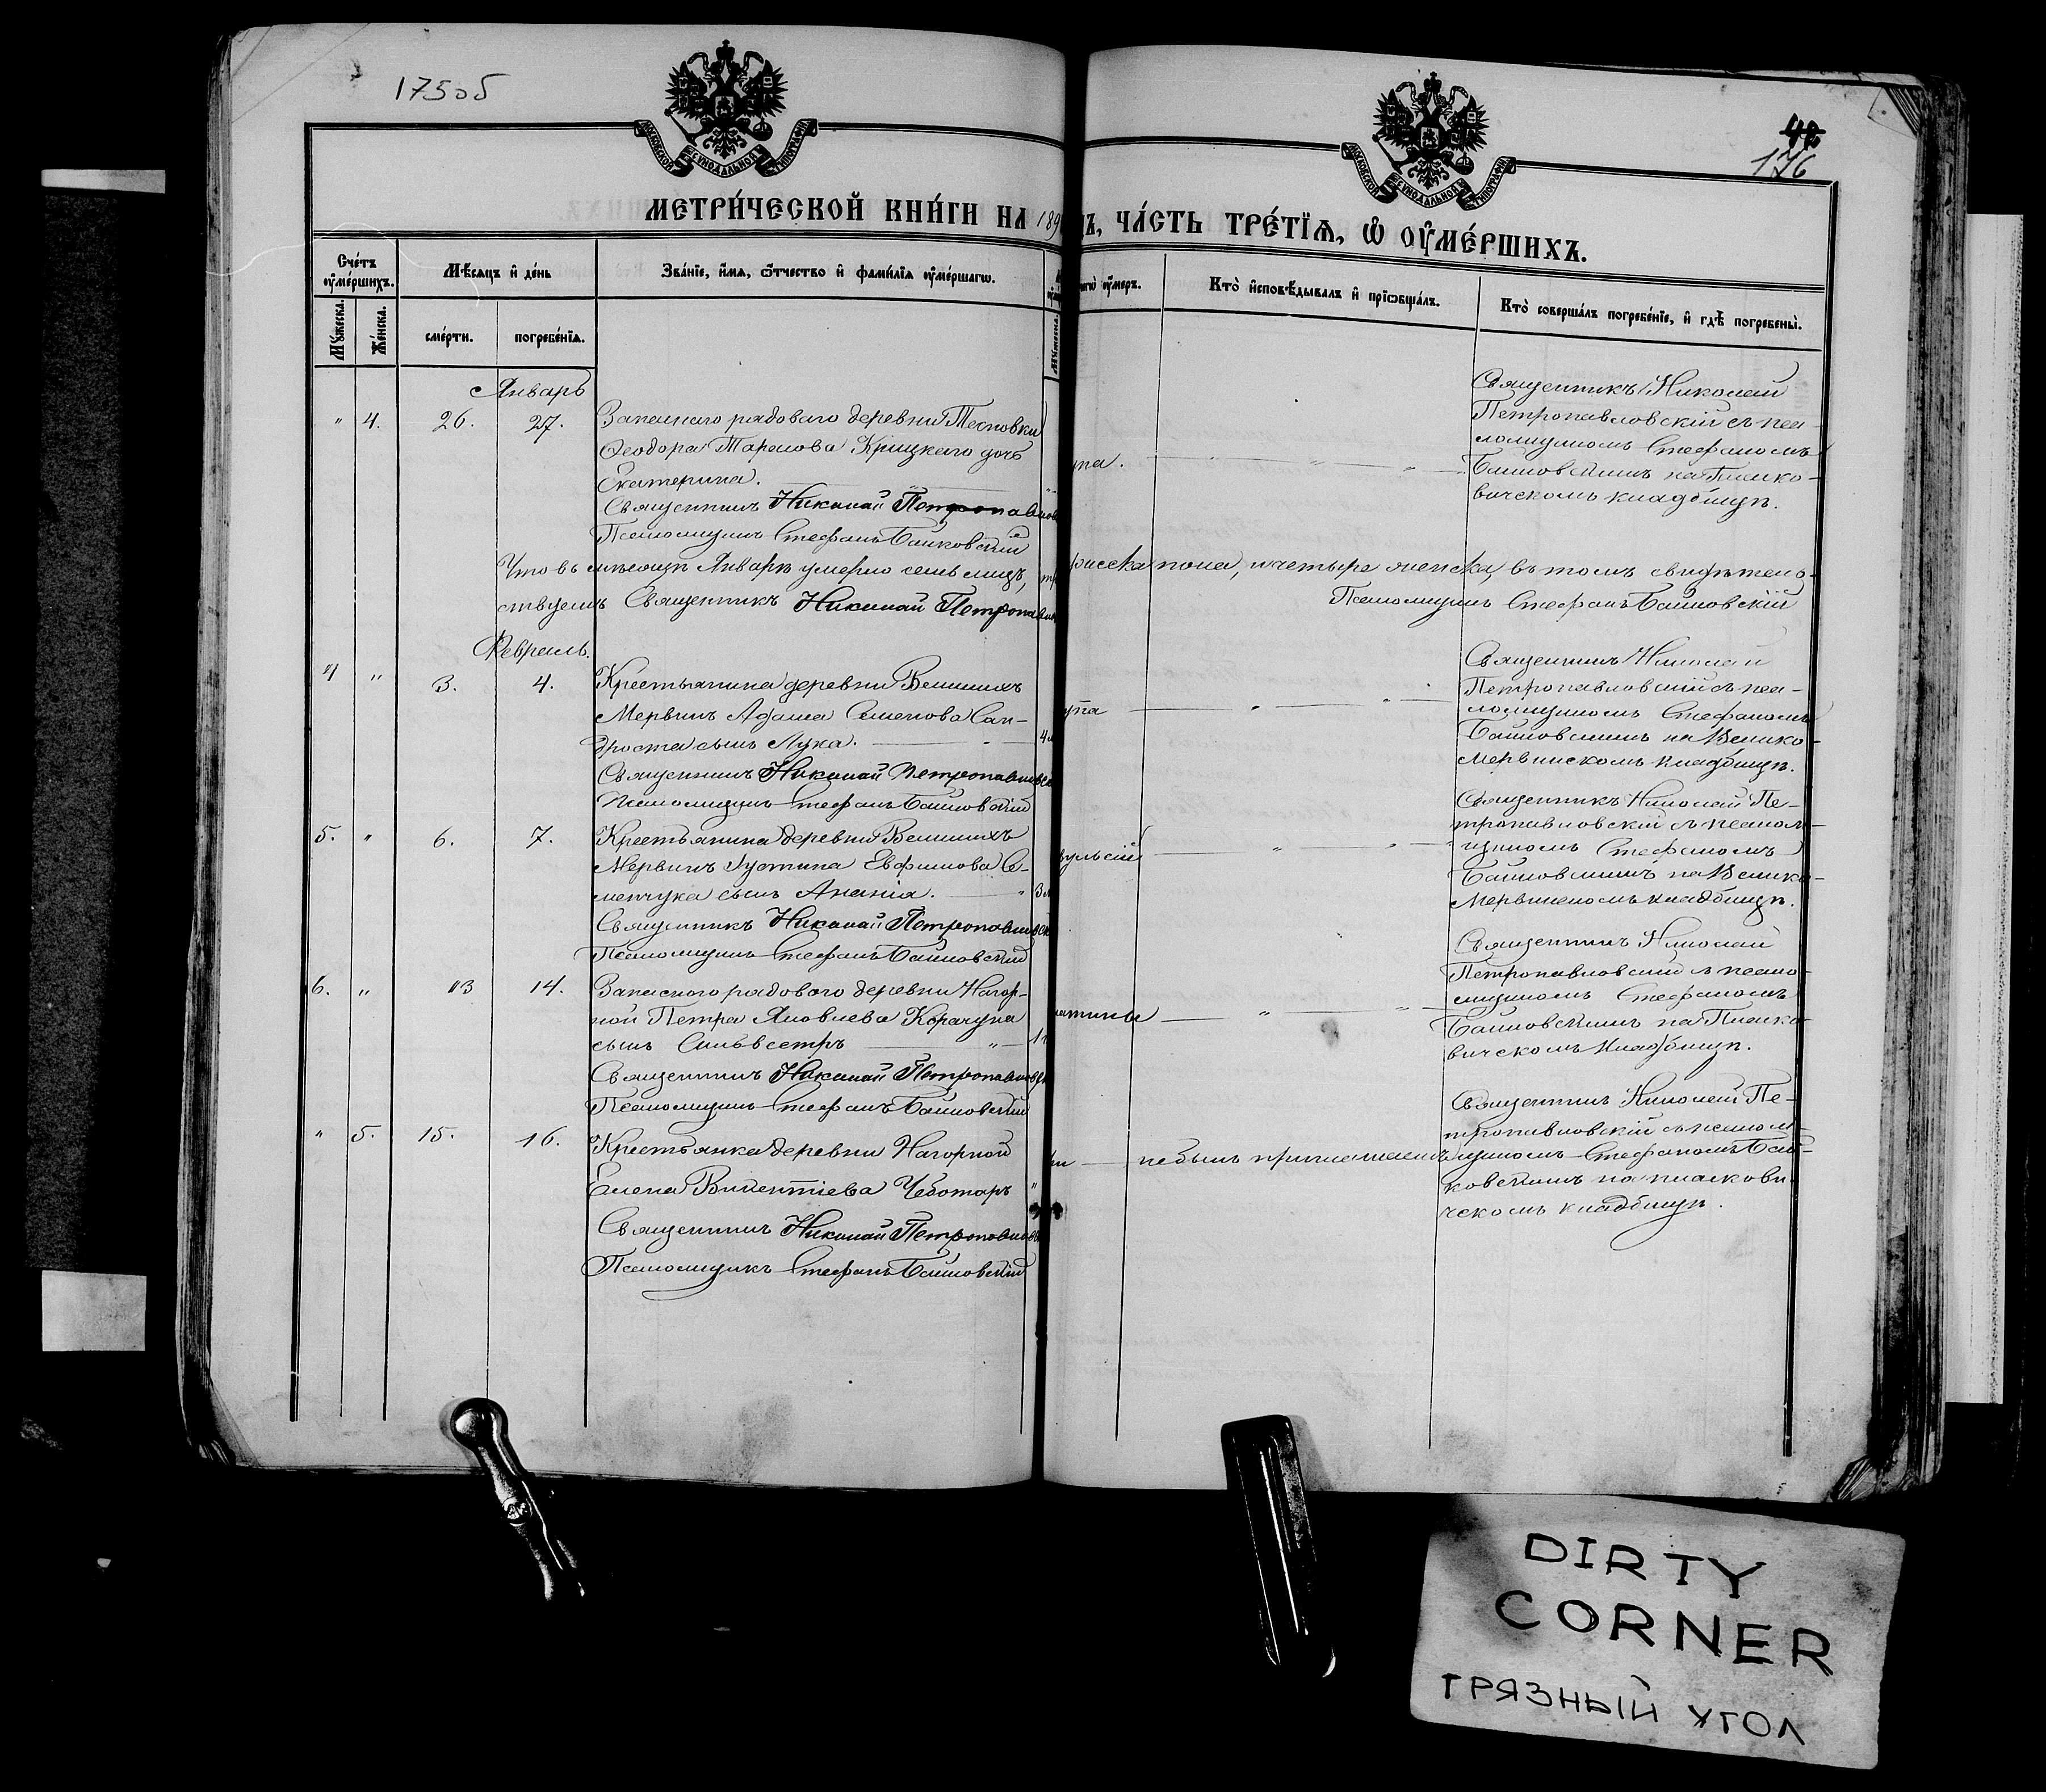 175об
42
176
МОСКОВСКОЙ СѴНОДАЛЬНОЙ ТИПОГРАФІИ
МОСКОВСКОЙ СѴНОДАЛЬНОЙ ТИПОГРАФІИ
МЕТРИ́ЧЕСКОЙ КНИ́ГИ НА 189
Ъ, ЧА́СТЬ ТРЕ́ТЇѦ, Ѡ҆ ОУ҆МЕ́РШИХЪ.
Сче́тъ оу҆ме́ршихъ.
Мѣ́сяцъ и҆ де́нь
Зва́нїе, и҆́мѧ, ѻ҆́тчество и҆ фами́лїѧ оу҆ме́ршагѡ.
оу҆́меръ.
Кто̀ и҆сповѣ́дывалъ и҆ прїѡбща́лъ.
Кто̀ соверша́лъ погребе́нїе, и҆ гдѣ̀ погребены̀.
Му́жеска.
Же́нска.
сме́рти.
погребе́нїѧ.
Январь
" 4. 26. 27.
Запаснаго рядоваго деревни Тесновки
Ѳеодора Тарасова Крицкаго дочь
Екатерина.
Священникъ Николай Петропавлов
Псаломщикъ Стефанъ Баиковскій
па.
Священникъ Николай
Петропавловскій съ пса-
ломщикомъ Стефаномъ
Баиковскимъ на Пиляко-
вичскомъ кладбищѣ.
Что въ мѣсяцѣ Январѣ умерло семь лицъ,
пола, и четыре женска, въ томъ свидѣтель-
ствуемъ Священникъ Николай Петропавлов
Псаломщикъ Стефанъ Баиковскій
Февраль.
4 " 3. 4.
Крестьянина деревни Великихъ
Мервинъ Адама Семенова Сан-
дроста сынъ Лука.
Священникъ Николай Петропавловск
Псаломщикъ Стефанъ Баиковскій
упа
Священникъ Николай
Петропавловскій съ пса-
ломщикомъ Стефаномъ
Баиковскимъ на Велико-
Мервинскомъ кладбищѣ.
5. " 6. 7.
Крестьянина деревни Великихъ
Мервинъ Іустина Евфимова Се-
менчука сынъ Ананія.
Священникъ Николай Петропавловск
Псаломщикъ Стефанъ Баиковскій
вульсій
Священникъ Николай Пе-
тропавловскій съ псалом-
щикомъ Стефаномъ
Баиковскимъ на Велико-
Мервинскомъ кладбищѣ.
6. " 13 14.
Запаснаго рядового деревни Нагор-
ной Петра Яковлева Корачуна
сынъ Сильвестръ
Священникъ Николай Петропавловск
Псаломщикъ Стефанъ Баиковскій
латины
Священникъ Николай
Петропавловскій съ псало-
мщикомъ Стефаномъ
Баиковскимъ на Пиляко-
вичскомъ кладбищѣ.
" 5. 15. 16.
Крестьянка деревни Нагорной
Елена Викентіева Чеботаръ
Священникъ Николай Петропавлов
Псаломщикъ Стефанъ Баиковскій
не былъ приглашаемъ
Священникъ Николай Пе-
тропавловскій съ псалом-
щикомъ Стефаномъ Баи-
ковскимъ на пиляковичскомъ кладбищѣ.
DIRTY
CORNER
ГРЯЗНЫЙ УГОЛ